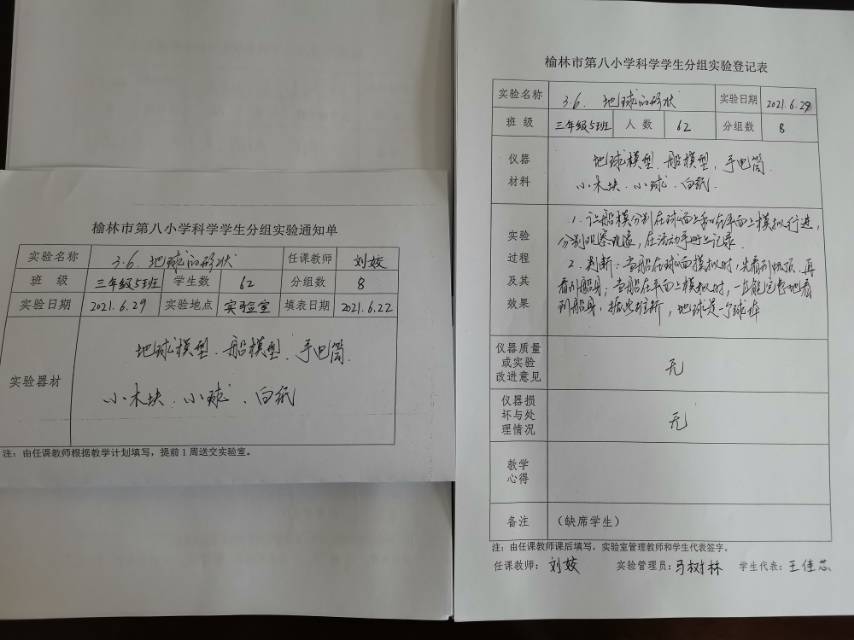 榆林市第八小学科学学生分组实验通知单
实验名称 3.6. 地球的形状 任课教师 刘姣
班级 三年级5班 学生数 62 分组数 8
实验日期 2021.6.29 实验地点 实验室 填表日期 2021.6.22
实验器材
地球模型、船模型、手电筒
小木块、小球、白纸
注：由任课教师根据教学计划填写，提前1周送交实验室。
榆林市第八小学科学学生分组实验登记表
实验名称 3.6. 地球的形状 实验日期 2021.6.29
班级 三年级5班 人数 62 分组数 8
仪器 地球模型、船模型、手电筒
材料 小木块、小球、白纸
实验
过程
及其
效果
1. 让船模分别在球面上和在平面上模拟行进,
分别观察,在活动手册上记录.
2. 判断:当船在球面模拟时,先看到,再
看到船身;当船在平面上模拟时,一直能完整地看
到船身,推断,地球是一个球体
仪器质量
或实验
改进意见
无
仪器损
坏与处
理情况
无
教学
心得
备注 （缺席学生）
注：由任课教师课后填写，实验室管理教师和学生代表签字。
任课教师：刘姣 实验管理员：马树林 学生代表：王佳芯